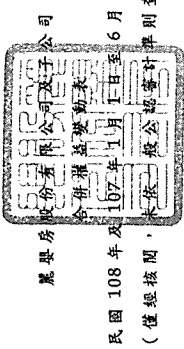 麗嬰房股份有限公司及子公司
合併權益變動表
民國 108 年及 107 年 1 月 1 日至 6 月
(僅經核閱,未依一般公認審計準則查